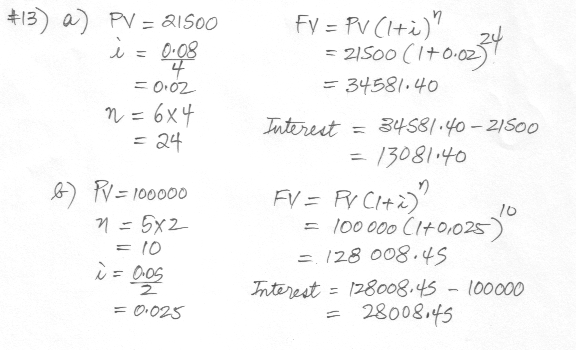 #13) a) PV = 21500
i = 0.08/4
= 0.02
n = 6x4
= 24
FV = PV (1+i)^n
= 21500 (1+0.02)^24
= 34581.40
Interest = 34581.40 - 21500
= 13081.40
b) PV = 100000
n = 5x2
= 10
i = 0.05/2
= 0.025
FV = PV (1+i)^n
= 100 000 (1+0.025)^10
= 128 008.45
Interest = 128008.45 - 100000
= 28008.45